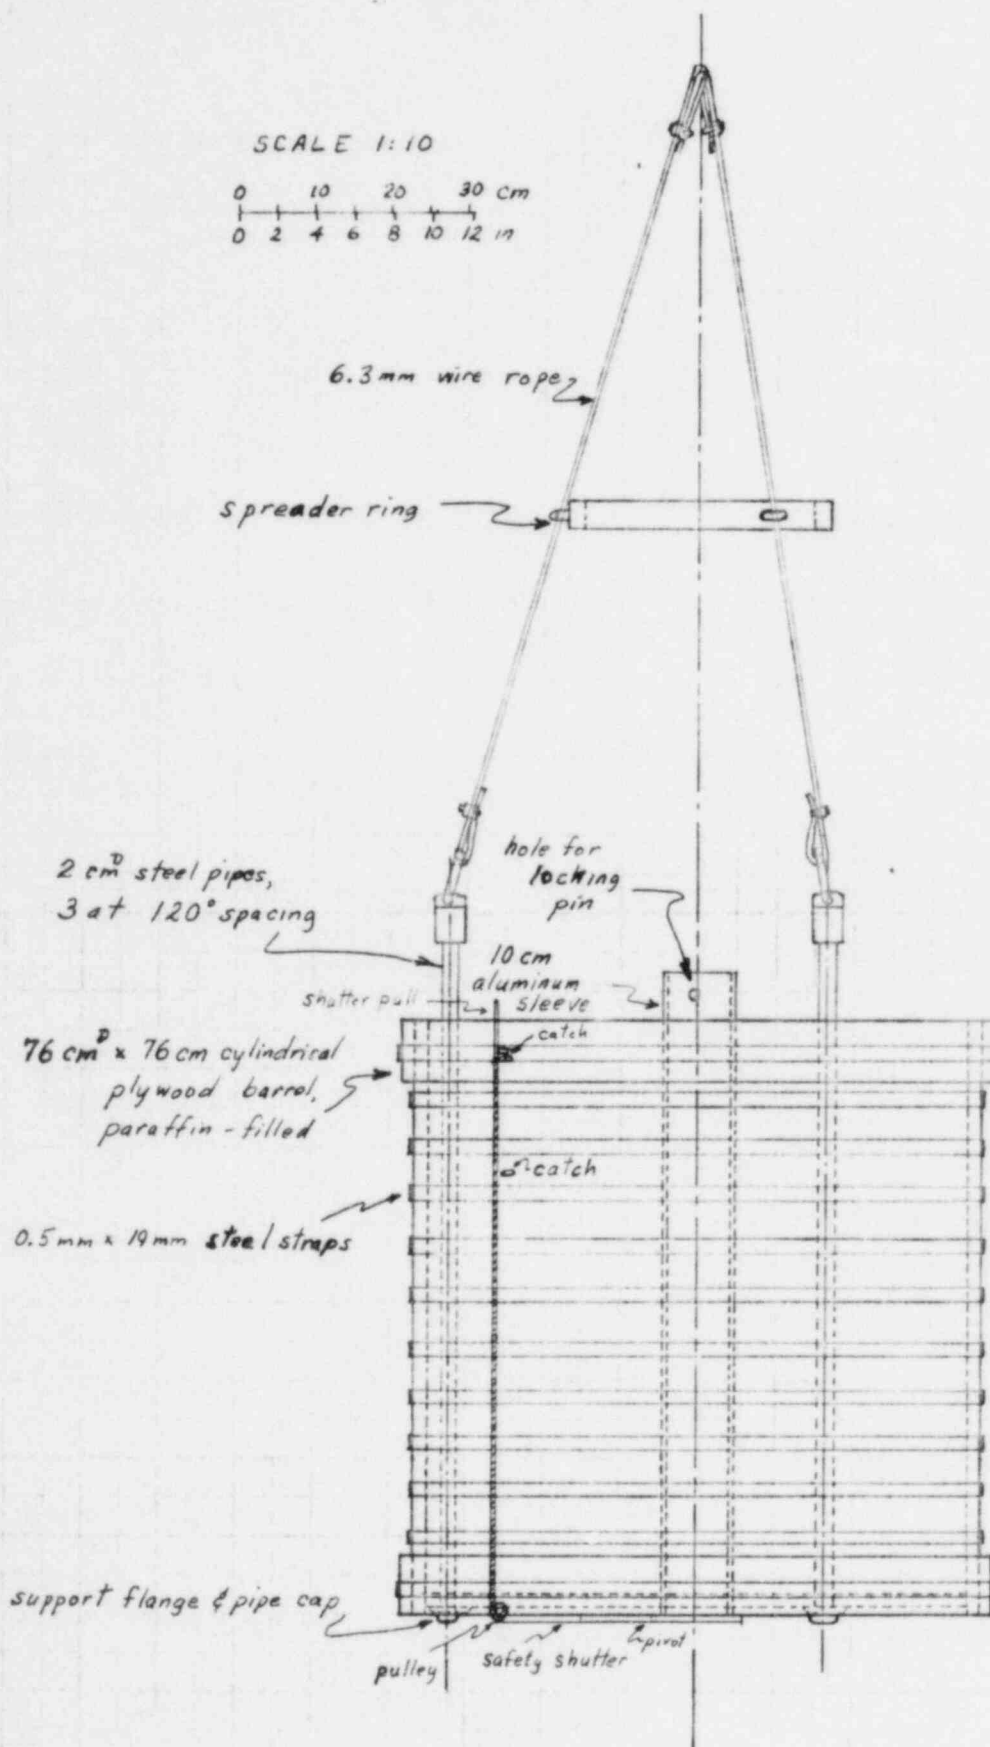 SCALE 1:10
0 10 20 30 cm
0 2 4 6 8 10 12 in
6.3mm wire rope
spreader ring
hole for
locking
pin
2 cmᴰ steel pipes,
3 at 120° spacing
10 cm
aluminum
sleeve
shutter pull
catch
76 cmᴰ x 76 cm cylindrical
plywood barrel,
paraffin-filled
catch
0.5mm x 19mm steel straps
support flange & pipe cap
pulley
safety shutter
pivot